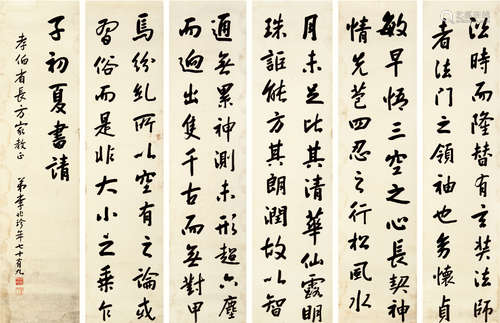 沿時而隆替有玄奘法師
者法門之領袖也幼懷貞
敏早悟三空之心長契神
情先苞四忍之行松風水
月未足比其清華仙露明
珠詎能方其朗潤故以智
通無累神測未形超六塵
而迥出隻千古而無對甲
馬紛糾所以空有之論或
習俗而是非大小之乘乍
子初夏書請
孝伯省長方家教正
弟李兆珍年七十有九